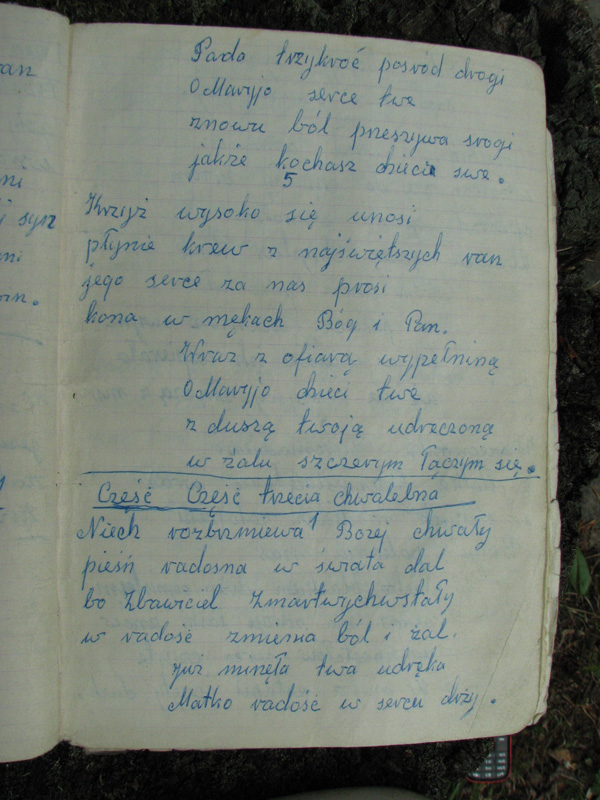 Pada trzykroć pośród drogi
O Maryjo serce twe
znowu ból przeszywa srogi
jakże kochasz dzieci swe.
5
Krzyż wysoko się unosi
płynie krew z najświętszych ran
jego serce za nas prosi
kona w mękach Bóg i Pan.
Wraz z ofiarą wypełnioną
O Maryjo dzieci twe
z duszą twoją udręczoną
w żalu szczerym łączym się.
Część Część trzecia chwalebna
1
Niech rozbrzmiewa Bożej chwały
pieśń radosna w świata dal
bo Zbawiciel Zmartwychwstały
w radość zmienia ból i żal.
już minęła twa udręka
Matko radość w sercu drży.
ran
ni
j syn
ni